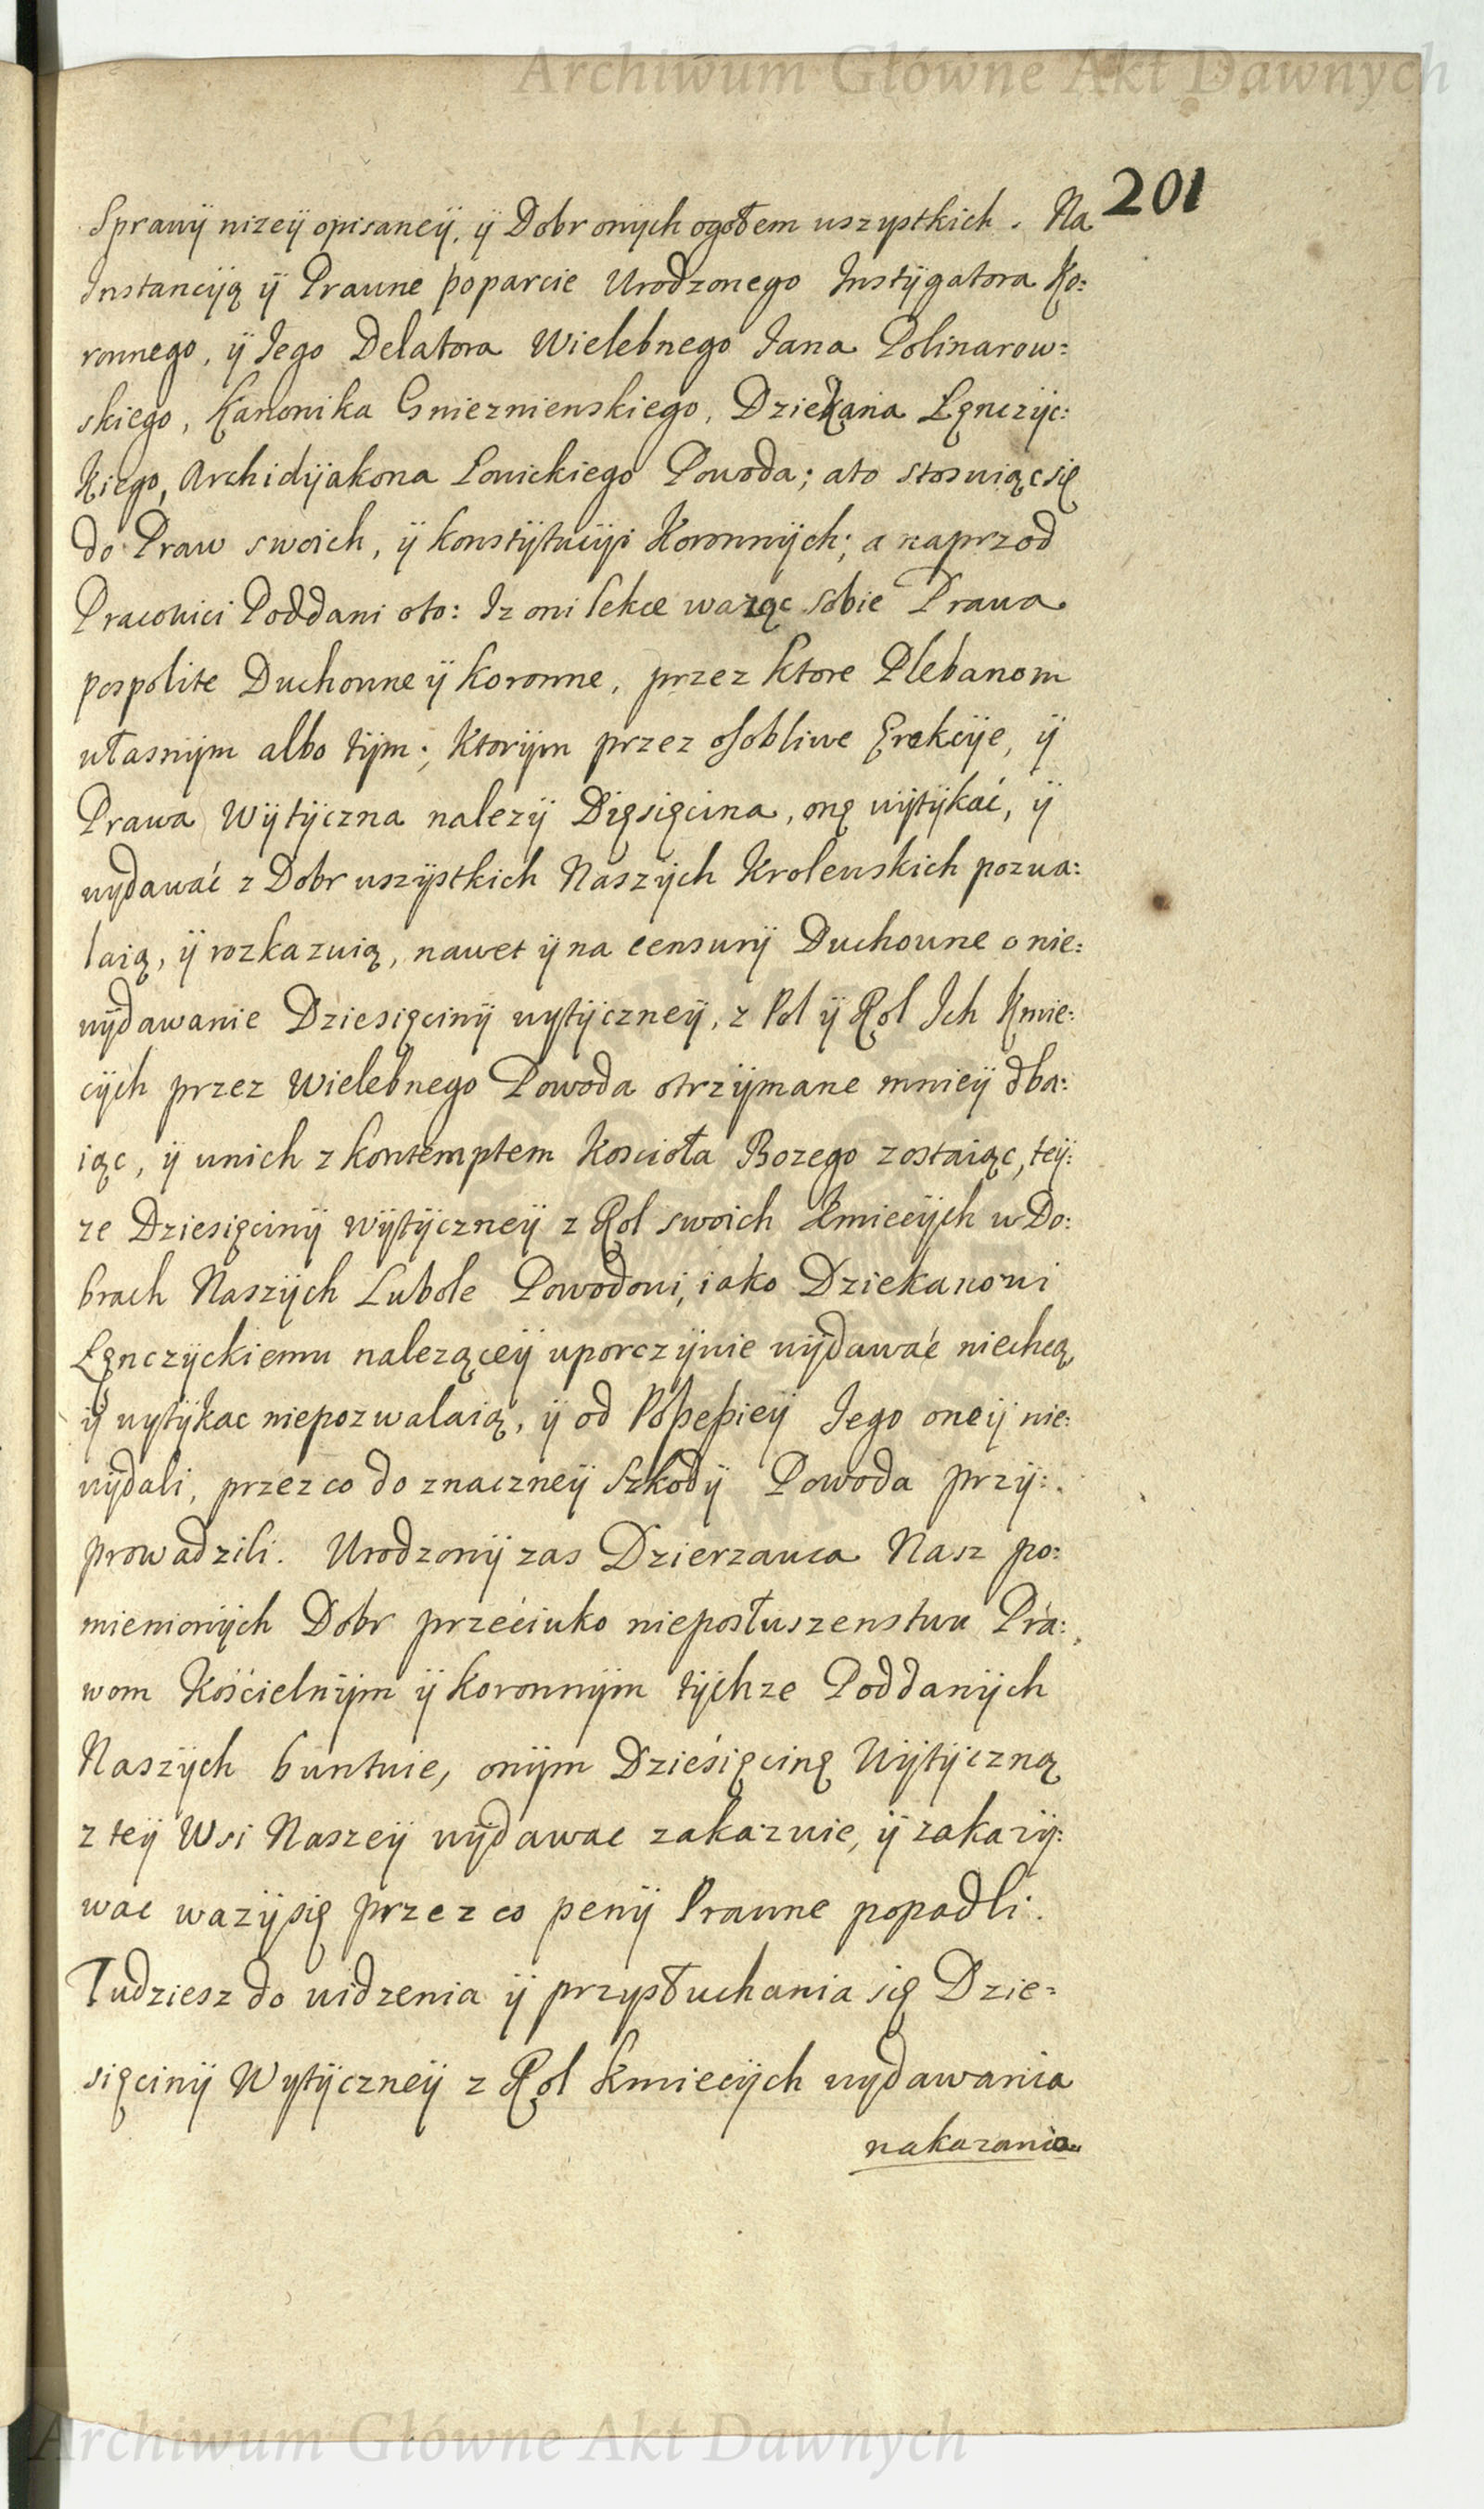 Archiwum Główne Akt Dawnych
201
Sprawÿ nizeÿ opisaneÿ, ÿ Dobr onÿch ogołem wszystkich. Na
Instancÿą ÿ Prawne poparcie Urodzonego Instÿgatora Ko:
ronnego, ÿ Jego Delatora Wielebnego Jana Polinarow:
skiego, Kanonika Gnieznienskiego, Dziekana Lęnczÿc:
kiego, Archidÿakona Lowickiego Powoda; ato stosuiąc się
do Praw swoich, ÿ konstÿtucÿi Koronnÿch; a naprzod
Pracowici Poddani oto: Iz oni lekce wazęc sobie Prawa
pospolite Duchowne ÿ koronne, przez ktore Plebanom
własnÿm albo tÿm; ktorÿm przez osobliwe Erekcÿe, ÿ
Prawa Wÿtÿczna nalezÿ Dięsięcina, onę wÿtÿkać, ÿ
wydawać z Dobr wszÿstkich Naszÿch Krolewskich pozwa:
laią, ÿ rozkazuią, nawet ÿ na censurÿ Duchowne o nie:
wÿdawanie Dziesięcinÿ wytÿczneÿ, z Pol ÿ Rol Ich Kmie:
cÿch przez Wielebnego Powoda otrzÿmane mnieÿ dba:
iąc, ÿ wnich z kontemptem Koscioła Bozego zostaiąc, teÿ:
ze Dziesięcinÿ wÿtÿczneÿ z Rol swoich Kmiecÿch w Do:
brach Naszÿch Lubole Powodowi, iako Dziekanowi
Lęnczÿckiemu naleząceÿ uporczÿwie wÿdawać niechcą,
ÿ wytÿkac niepozwalaią, ÿ od Possessieÿ Jego oneÿ nie:
wÿdali, przez co do znaczneÿ szkodÿ Powoda przÿ:
prowadzili. Urodzonÿ zas Dzierzawca Nasz po:
mienionÿch Dobr przeciwko nieposłuszenstwu Pra:
wom Kościelnÿm ÿ koronnÿm tÿchze Poddanÿch
Naszÿch buntuie, onÿm Dzieśięcinę Wÿtÿczną
z teÿ Wsi Naszeÿ wÿdawac zakazuie, ÿ zakazÿ:
wac wazÿ się przez co penÿ Prawne popadli.
Tudziesz do widzenia ÿ przysłuchania się Dzie:
sięcinÿ Wytÿczneÿ z Rol kmiecÿch wydawania
nakazania
Archiwum Główne Akt Dawnych